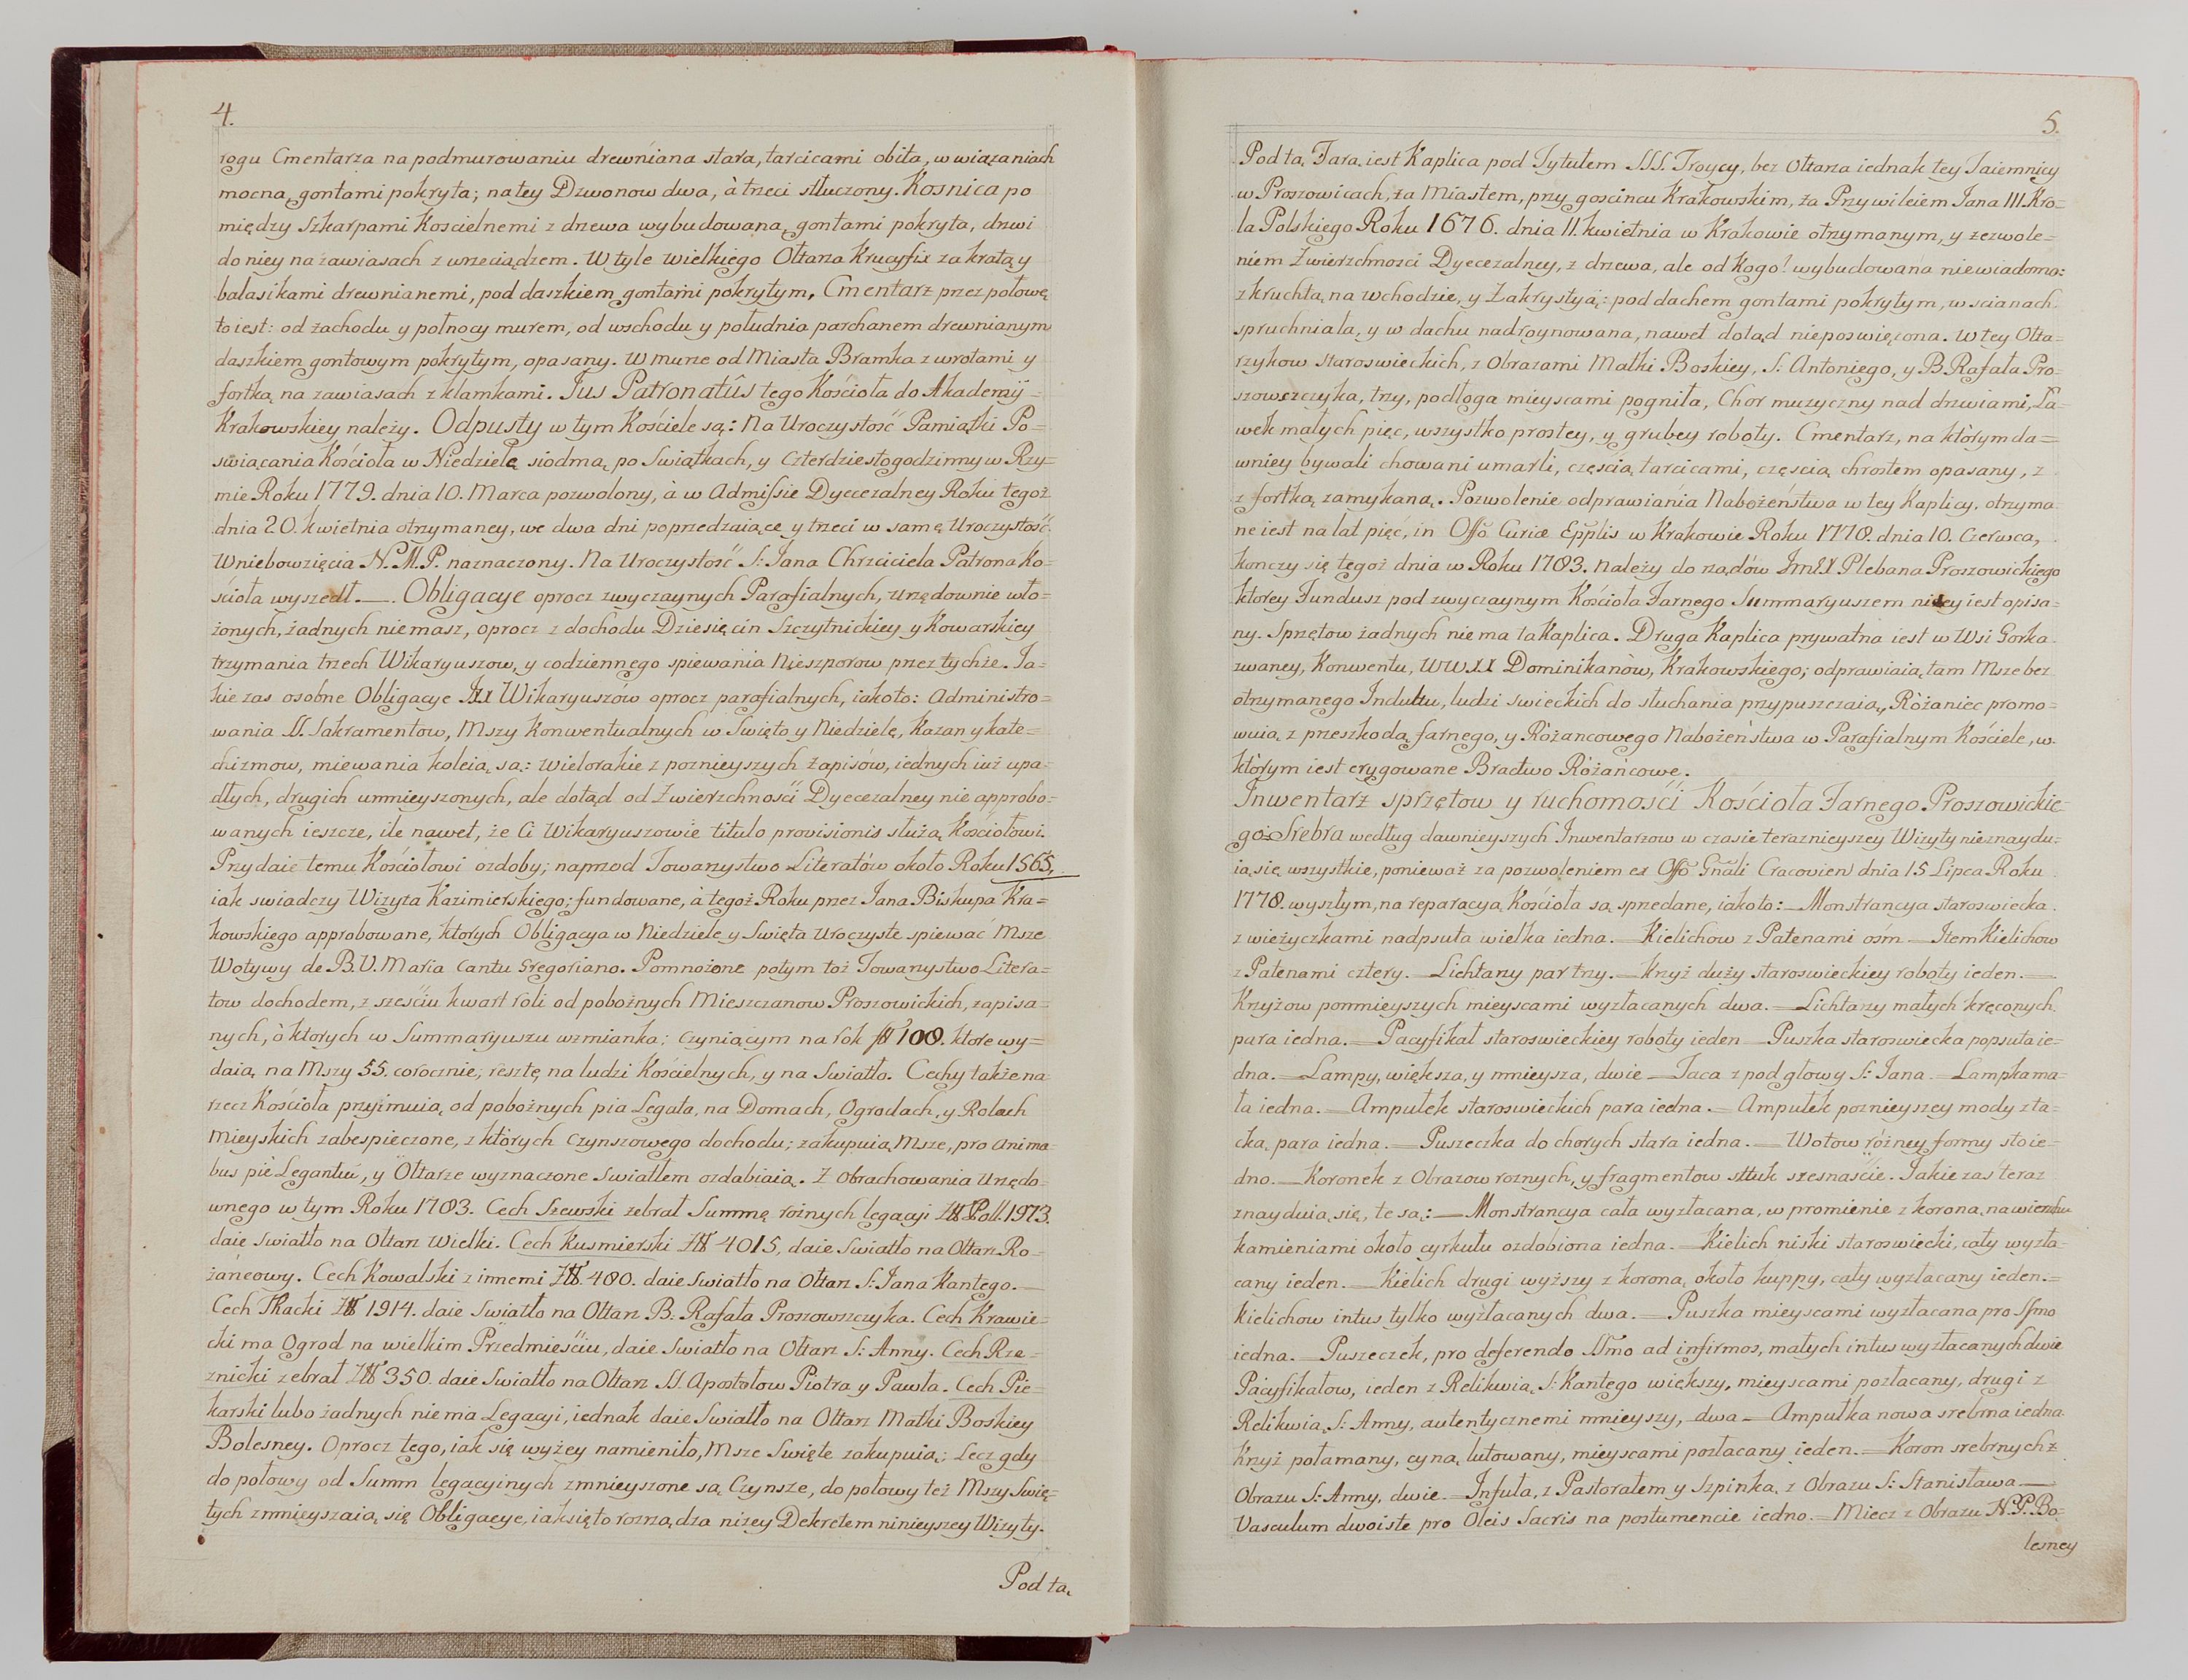 4.
rogu Cmentarza na podmurowaniu drewniana stara, tarcicami obita, w wiązaniach
mocna, gontami pokryta; na tey Dzwonow dwa, à trzeci stłuczony. Kosnica po
między Szkarpami Koscielnemi z drzewa wybudowana, gontami pokryta, drzwi
do niey na zawiasach z wrzeciądzem. W tyle wielkiego Ołtarza Krucyfix za kratą y
balasikami drewnianemi, pod daszkiem gontami pokrytym. Cmentarz przez połowę
to iest: od zachodu y połnocy murem, od wschodu y południa parchanem drewnianym
daszkiem gontowym pokrytym, opasany. W murze od Miasta Bramka z wrotami y
fortką na zawiasach z klamkami. Jus Patronatûs tego Kościoła do Akademÿ=
Krakowskiey należy. Odpusty w tym Kościele są: Na Uroczystość Pamiątki Po=
swiącania Kościoła w Niedzielę siodmą po Swiątkach, y Czterdziestogodzinny w Rzy=
mie Roku 1779. dnia 10. Marca pozwolony, à w Admissie Dyecezalney Roku tegoż
dnia 20. kwietnia otrzymaney, we dwa dni poprzedzaiące y trzeci w samę Uroczystość
Wniebowzięcia N. M. P. naznaczony. Na Uroczystość S: Jana Chrzciciela Patrona Ko=
ścioła wyszedł. — . Obligacye oprocz zwyczaynych Parafialnych, urzędownie wło=
żonych, żadnych nie masz, oprocz z dochodu Dziesięcin Szczytnickiey y Kowarskiey
trzymania trzech Wikaryuszow, y codziennego spiewania Nieszporow przez tychże. Ja=
kie zas osobne Obligacye XX Wikaryuszów oprocz parafialnych, iakoto: Administro=
wania SS. Sakramentow, Mszy Konwentualnych w Swięto y Niedzielę, Kazan y kate=
chizmow, miewania koleią są: wielorakie z poznieyszych Zapisów, iednych iuż upa=
dłych, drugich umnieyszonych, ale dotąd od Zwierzchności Dyecezalney nie approbo=
wanych ieszcze, ile nawet, że Ci Wikaryuszowie titulo provisionis służą Kościołowi.
Przydaie temu Kościołowi ozdoby; naprzod Towarzystwo Literatów około Roku 1565,
iak swiadczy Wizyta Kazimierskiego; fundowane, à tegoż Roku przez Jana Biskupa Kra=
kowskiego approbowane, ktorych Obligacya w Niedziele y Swięta Uroczyste spiewać Msze
Wotywy de B. V. Maria Cantu Gregoriano. Pomnożone potym toż Towarzystwo Litera=
tow dochodem, z sześciu kwart roli od pobożnych Mieszczanow Proszowickich, zapisa=
nych, ò ktorych w Summaryuszu wzmianka; czyniącym na rok fl 108. ktore wy=
daią na Mszy 55. corocznie, resztę na ludzi Kościelnych, y na Swiatło. Cechy także na
rzecz Kościoła przyimuią od pobożnych pia Legata, na Domach, Ogrodach, y Rolach
Mieyskich zabespieczone, z których Czynszowego dochodu; zakupuią Msze, pro Anima=
bus piè Legantiũ, y Ołtarze wyznaczone swiatłem ozdabiaią. Z obrachowania Urzędo=
wnego w tym Roku 1783. Cech Szewski zebrał Summę rożnych legacyi Poll. 1973.
daie swiatło na Ołtarz Wielki. Cech Kusmierski 4015, daie Swiatło na Ołtarz Ro=
żańcowy. Cech Kowalski z innemi 480. daie Swiatło na Ołtarz S: Jana Kantego. —
Cech Tkacki 1914. daie Swiatło na Ołtarz B: Rafała Proszowszczyka. Cech Krawie=
cki ma Ogrod na wielkim Przedmieściu, daie Swiatło na Ołtarz S: Anny. Cech Rze=
znicki zebrał 350. daie Swiatło na Ołtarz SS. Apostołow Piotra y Pawła. Cech Pie=
karski lubo żadnych niema Legacyi, iednak daie Swiatło na Ołtarz Matki Boskiey
Bolesney. Oprocz tego, iak się wyżey namieniło, Msze Swięte zakupuią; Lecz gdy
do połowy od Summ legacyinych zmnieyszone są Czynsze, do połowy też Mszy Swię=
tych zmnieyszaią się Obligacye, iak się to rozrządza niżey Dekretem ninieyszey Wizyty.
Pod tą
5.
Pod tą Farą iest Kaplica pod Tytułem SSS. Troycy, bez Ołtarza iednak tey Taiemnicy
w Proszowicach, za Miastem, przy goscincu Krakowskim, za Przywileiem Jana III. Kro=
la Polskiego Roku 1676. dnia 11. kwietnia w Krakowie otrzymanym, y zezwole=
niem Zwierzchnosci Dyecezalney, z drzewa, ale od Kogo? wybudowana niewiadomo:
z kruchtą na wchodzie, y Zakrystyą: pod dachem gontami pokrytym, w scianach
spruchniała, y w dachu nadroynowana, nawet dotąd nieposwięcona. W tey Ołta=
rzykow staroswieckich, z Obrazami Matki Boskiey, S: Antoniego, y B. Rafała Pro=
szowszczyka, trzy, podłoga mieyscami pogniła, Chor muzyczny nad drzwiami, Ła=
wek małych pięć, wszystko prostey, y grubey roboty. Cmentarz, na którym da=
wniey bywali chowani umarli, częscią tarcicami, częscią chrostem opasany, z
z fortką zamykaną. Pozwolenie odprawiania Nabożeństwa w tey Kaplicy, otrzyma
ne iest na lat pięć, in Offo Curiæ Epplis w Krakowie Roku 1778. dnia 10. Czerwca,
kończy się tegoż dnia w Roku 1783. Należy do rządów JmX Plebana Proszowickiego
ktorey Fundusz pod zwyczaynym Kościoła Farnego Summaryuszem niżey iest opisa=
ny. Sprzętow żadnych nie ma ta Kaplica. Druga Kaplica prywatna iest w Wsi Gorka
zwaney, Konwentu, WW XX Dominikanòw, Krakowskiego; odprawiaią tam Msze bez
otrzymanego Indultu, ludzi swieckich do słuchania przypuszczaią, Rôżaniec promo=
wuią z przeszkodą farnego, y Rôżancowego Nabożeństwa w Parafialnym Kościele, w
którym iest erygowane Bractwo Rôżańcowe.
Inwentarz sprzętow y ruchomości Kościoła Farnego Proszowickie=
go: Srebra według dawnieyszych Inwentarzow w czasie teraznieyszey Wizyty nieznaydu=
ią się wszystkie, ponieważ za pozwoleniem ex Offõ Gñali Cracovien dnia 15 Lipca Roku
1778. wyszłym, na reparacyą Kościoła są sprzedane, iakoto: — Monstrancya staroswiecka
z wieżyczkami nadpsuta wielka iedna. — Kielichow z Patenami ośm — Item Kielichow
z Patenami cztery. — Lichtarzy par trzy. — Krzyż duży staroswieckiey roboty ieden. —
Krzyżow pomnieyszych mieyscami wyzłacanych dwa. — Lichtarzy małych kręconych
para iedna. — Pacyfikał staroswieckiey roboty ieden — Puszka staroswiecka popsuta ie=
dna. — Lampy, większa, y mnieysza, dwie — Taca z pod głowy S: Jana. — Lampka ma=
ła iedna. — Ampułek staroswieckich para iedna. — Ampułek poznieyszey mody z ta=
cką, para iedna. — Puszeczka do chorych stara iedna. — Wotow różney formy sto ie=
dno. — Koronek z Obrazow roznych, y fragmentow sztuk szesnaście. Jakie zas teraz
znayduią się, te są: — Monstrancya cała wyzłacana, w promienie z koroną na wierzchu
kamieniami około cyrkułu ozdobiona iedna. — Kielich niski staroswiecki, cały wyzła=
cany ieden. — Kielich drugi wyższy z koroną około kuppy, cały wyzłacany ieden. =
kielichow intus tylko wyzłacanych dwa. — Puszka mieyscami wyzłacana pro Ssmo
iedna. — Puszeczek, pro deferendo SSmo ad infirmos, małych intus wyzłacanych dwie
Pacyfikałow, ieden z Relikwią S: Kantego większy, mieyscami pozłacany, drugi z
Relikwią S: Anny, autentycznemi mnieyszy, dwa — Ampułka nowa srebrna iedna
Krzyż połamany, cyną lutowany, mieyscami pozłacany ieden. — Koron srebrnych z
Obrazu S: Anny, dwie. — Infuła, z Pastorałem y Szpinką, z Obrazu S: Stanisława —
Vasculum dwoiste pro Oleis Sacris na postumencie iedno. — Miecz z Obrazu N. P. Bo=
lesney